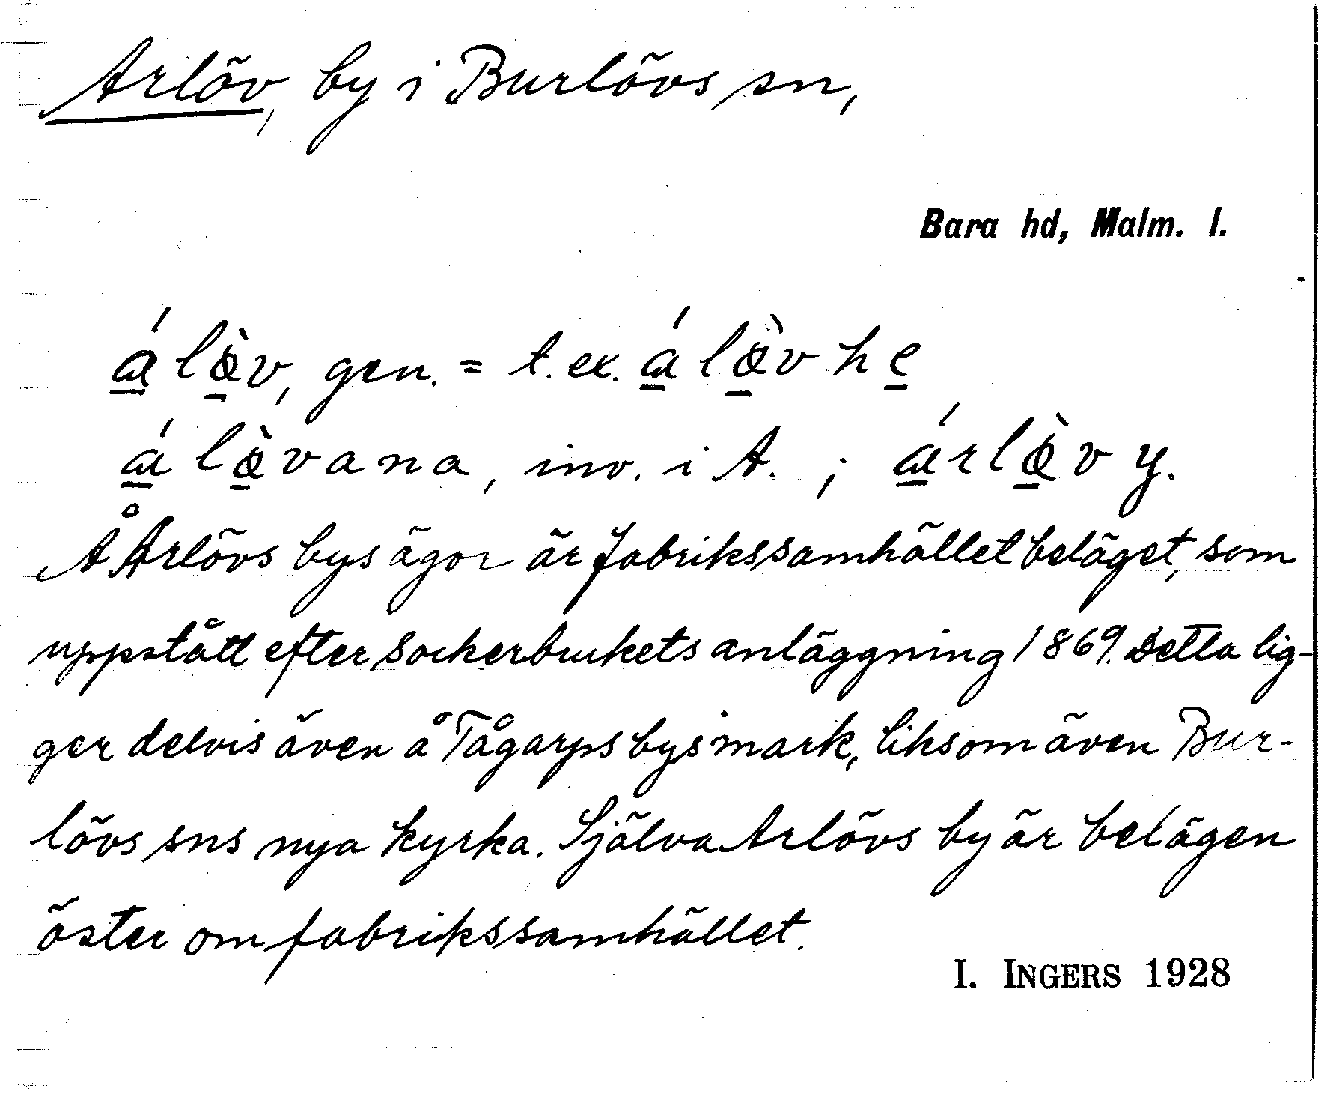 Arlöv, by i Burlövs sn,
Bara hd, Malm. l.
á̱lø̱̀v, gen. = t. ex. á̱lø̱̀v he̱
á̱lø̱̀vana, inv. i A. ; á̱rlø̱̀v y.
Å Arlövs bys ägor är fabrikssamhället beläget, som
uppstått efter sockerbrukets anläggning 1869. Detta lig-
ger delvis även å Tågarps bys mark, liksom även Bur-
lövs sns nya kyrka. Själva Arlövs by är belägen
öster om fabrikssamhället.
I. INGERS 1928